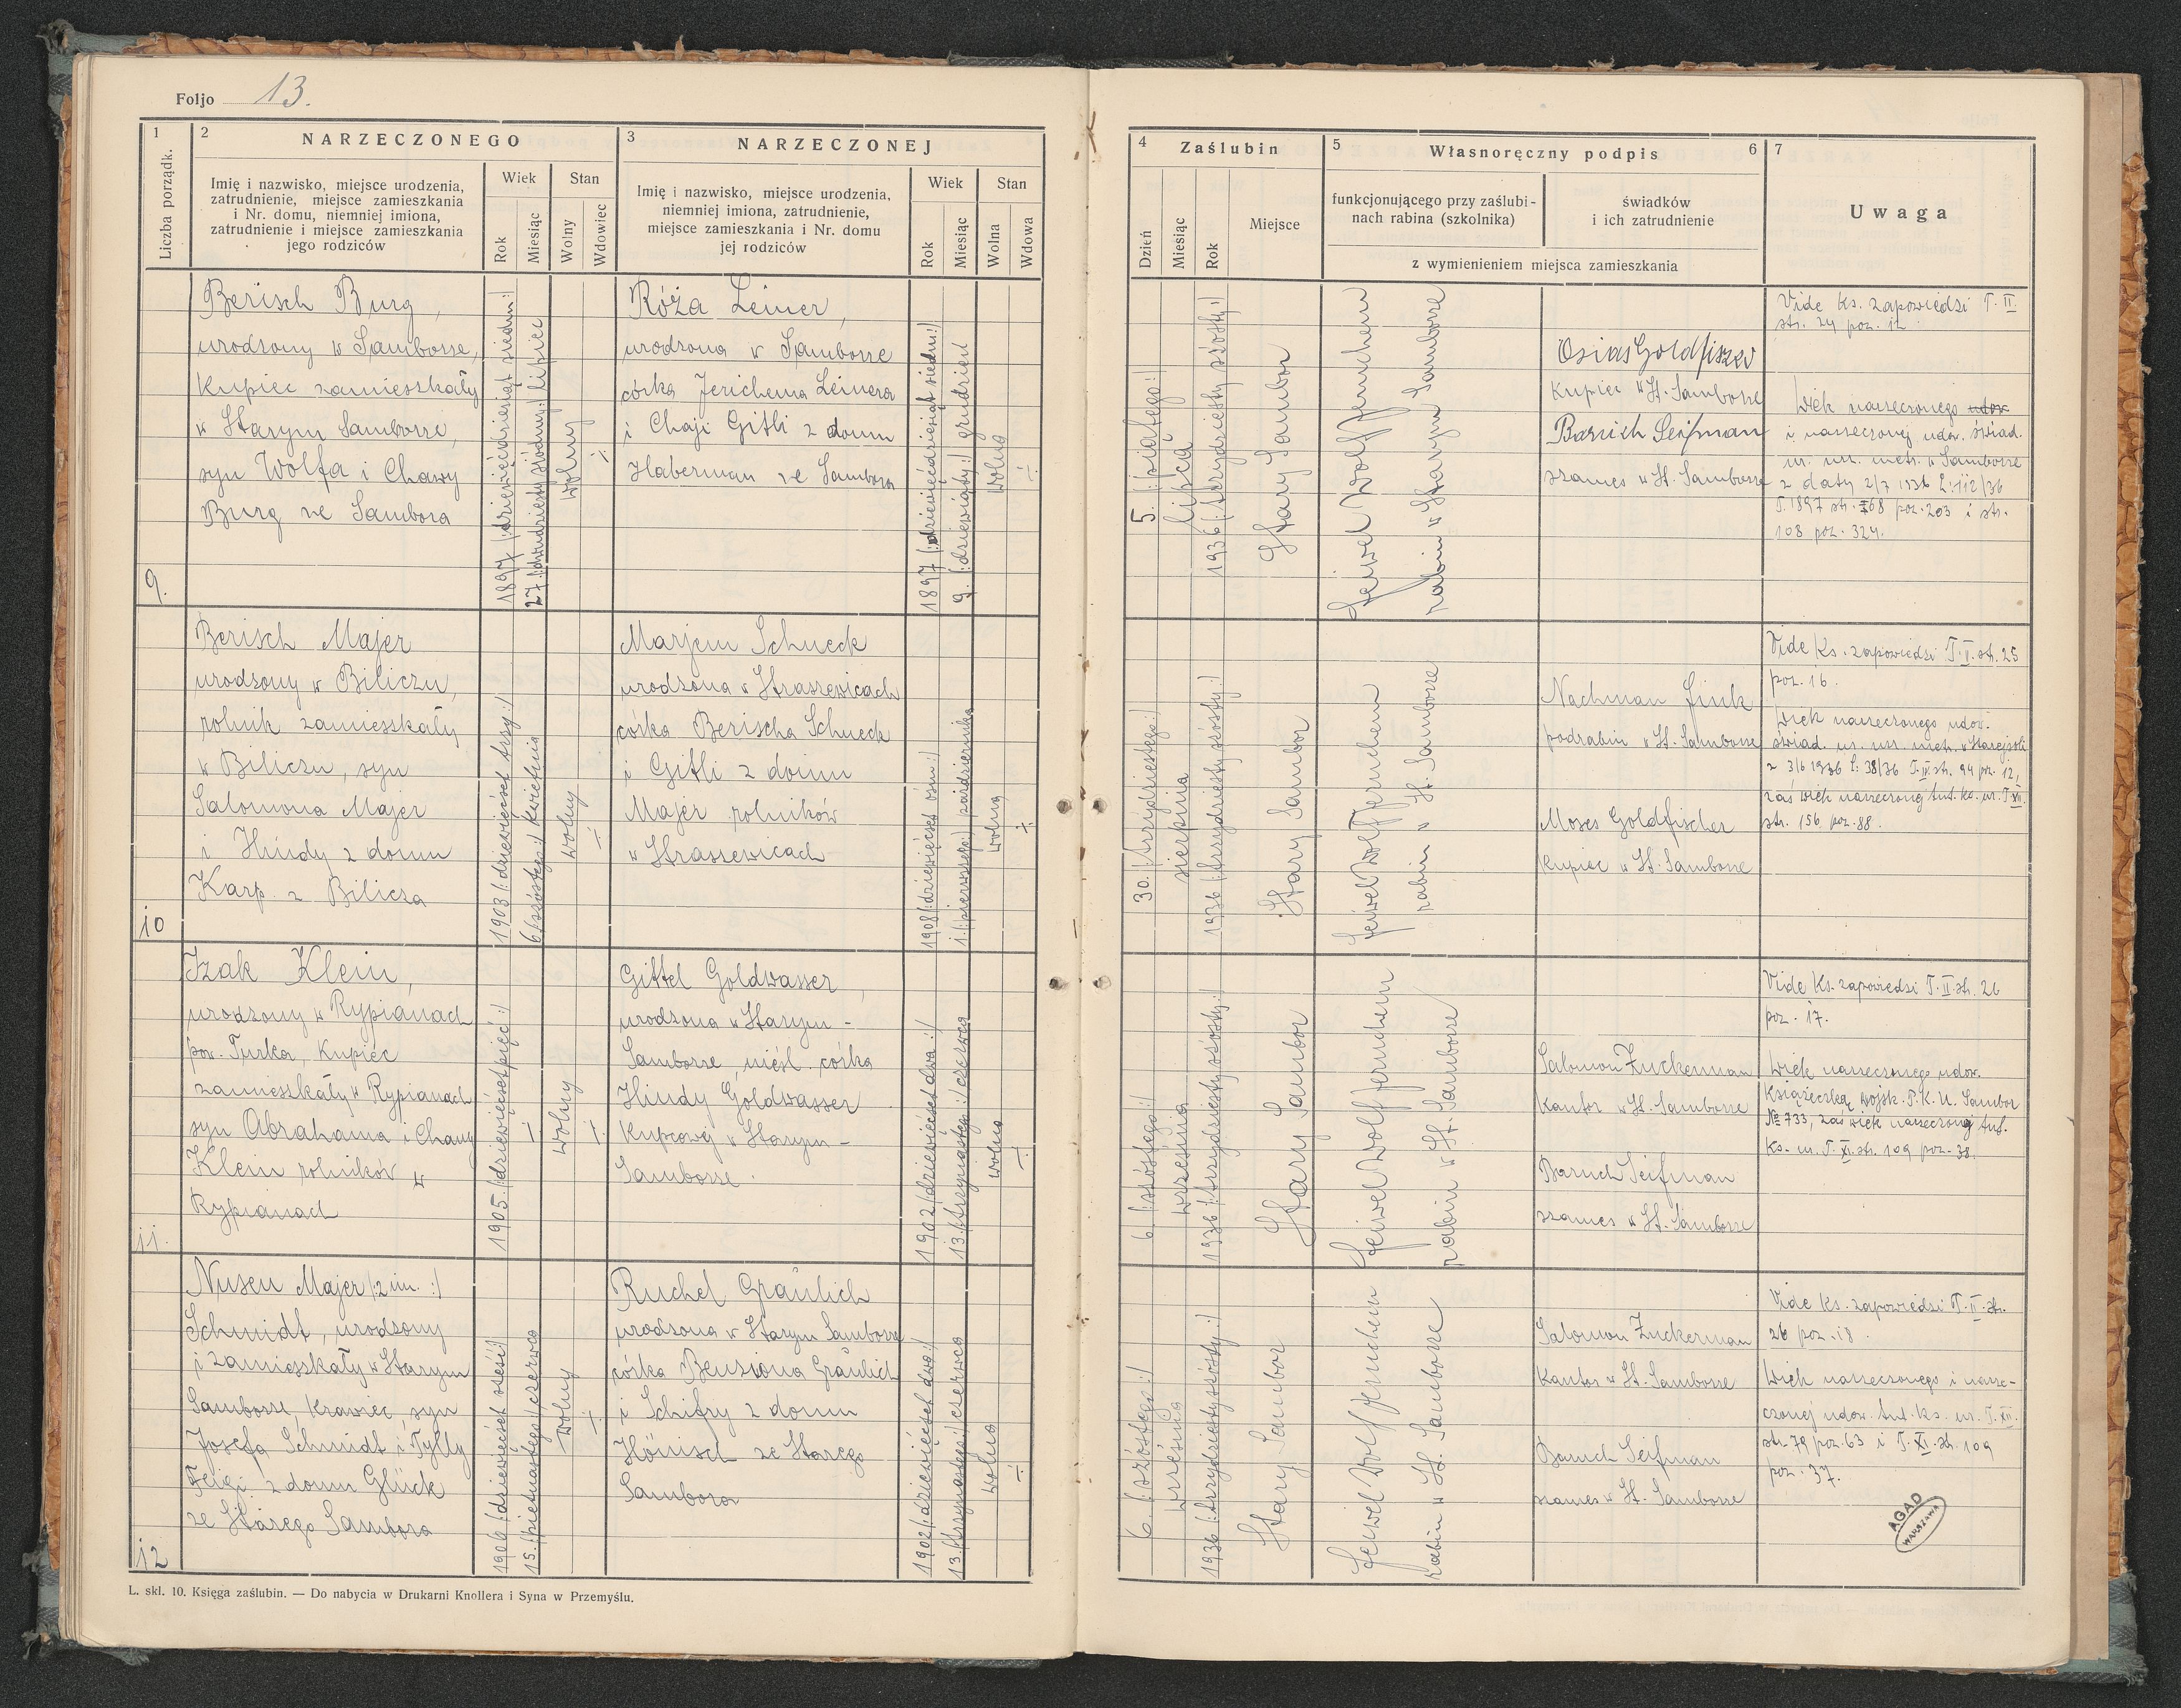 Foljo 13.
1
Liczba porządk.
2
NARZECZONEGO
Imię i nazwisko, miejsce urodzenia,
zatrudnienie, miejsce zamieszkania
i Nr. domu, niemniej imiona,
zatrudnienie i miejsce zamieszkania
jego rodziców
Wiek
Rok
Miesiąc
Stan
Wolny
Wdowiec
3
NARZECZONEJ
Imię i nazwisko, miejsce urodzenia,
niemniej imiona, zatrudnienie,
miejsce zamieszkania i Nr. domu
jej rodziców
Wiek
Rok
Miesiąc
Stan
Wolna
Wdowa
4
Zaślubin
Dzień
Miesiąc
Rok
Miejsce
5
Własnoręczny podpis
6
funkcjonującego przy zaślubi-
nach rabina (szkolnika)
świadków
i ich zatrudnienie
z wymienieniem miejsca zamieszkania
7
Uwaga
9.
Berisch Burg,
urodzony w Samborze,
Kupiec zamieszkały
w Starym Samborze,
syn Wolfa i Chawy
Burg ze Sambora
1897 /:dziewięćdziesiąt siedm:/
27 /:dwudziesty siódmy:/ lipiec
wolny
÷
Róża Leiner,
urodzona w Samborze
córka Jerichema Leinera
i Chaji Gitli z domu
Haberman ze Sambora
1897 /:dziewięćdziesiąt siedm:/
9. /:dziewiąty:/ grudzień
wolna
÷
5. /:piątego:/
lipca
1936 /:trzydziesty szósty:/
Stary Sambor
Feiwel Wolf Jeruchem
rabin w Starym Samborze
Osias Goldfiszer
Kupiec w St. Samborze
Baruch Seifman
szames w St. Samborze
Vide Ks. zapowiedzi T. II.
str. 24 poz. 12.
Wiek narzeczonego udow
i narzeczonej udow. świad.
ur. urz. metr. w Samborze
z daty 2/7 1936 L: 112/36
T. 1897 str. 68 poz. 203 i str.
108 poz. 324.
10
Berisch Majer
urodzony w Biliczu,
rolnik zamieszkały
w Biliczu, syn
Salomona Majer
i Hindy z domu
Karp. z Bilicza
1903 /:dziewięćset trzy:/
6 /:szóstego:/ kwietnia
wolny
÷
Marjem Schneck
urodzona w Straszewicach
córka Berischa Schneck
i Gitli z domu
Majer rolników
w Straszewicach
1908 /:dziewięćset ośm:/
1. /:pierwszego:/ października
wolna
÷
30. /:trzydziestego:/
sierpnia
1936 /:trzydziesty szósty:/
Stary Sambor
Feiwel Wolf Jeruchem
rabin w St. Samborze
Nachman Fink
podrabin w St. Samborze
Moses Goldfischer
Kupiec w St. Samborze
Vide Ks. zapowiedzi T. II. str. 25
poz. 16.
Wiek narzeczonego udow.
świad. ur. urz. metr. w Starejsoli
z 3/6 1936 L: 38/36 T. IV. str. 94 poz. 12,
zaś wiek narzeczonej tut. ks. ur. T. XII.
str. 156 poz. 88.
11.
Izak Klein,
urodzony w Rypianach
pow. Turka, Kupiec
zamieszkały w Rypianach
syn Abrahama i Chany
Klein rolników w
Rypianach
1905 /:dziewięćset pięć:/
÷
wolny
÷
Gittel Goldwasser,
urodzona w Starym-
Samborze, nieśl. córka
Hindy Goldwasser
Kupcowej w Starym-
Samborze.
1902 /:dziewięćset dwa:/
13. /:trzynastego:/ czerwca
wolna
÷
6. /:szóstego:/
września
1936 /:trzydziesty szósty:/
Stary Sambor
Feiwel Wolf Jeruchem
rabin w St. Samborze
Salomon Zuckerman
Kantor w St. Samborze
Baruch Seifman
szames w St. Samborze
Vide Ks. zapowiedzi T. II. str. 26
poz. 17.
Wiek narzeczonego udow.
Książeczką wojsk. P.K.U. Sambor
№ 733, zaś wiek narzeczonej tut.
Ks. ur. T. XI. str. 109 poz. 38.
12
Nusen Majer /:2 im.:/
Schmidt, urodzony
i zamieszkały w Starym
Samborze, Krawiec, syn
Josefa Schmidt i Tylly
Feigi z domu Glück
ze Starego Sambora
1906 /:dziewięćset sześć:/
15. /:piętnastego:/ czerwca
wolny
÷
Ruchel Graulich
urodzona w Starym Samborze
córka Benziona Graulich
i Schifry z domu
Hönisch ze Starego
Sambora
1902 /:dziewięćset dwa:/
13. /:trzynastego:/ czerwca
wolna
÷
6. /:szóstego:/
września
1936 /:trzydziesty szósty:/
Stary Sambor
Feiwel Wolf Jeruchem
rabin w St. Samborze
Salomon Zuckerman
Kantor w St. Samborze
Baruch Seifman
szames w St. Samborze
Vide Ks. zapowiedzi T. II. str.
26 poz. 18.
Wiek narzeczonego i narze-
czonej udow. tut. ks. ur. T. XII.
str. 79 poz. 63 i T. XI. str. 109
poz. 37.
AGAD
WARSZAWA
L. skł. 10. Księga zaślubin. — Do nabycia w Drukarni Knollera i Syna w Przemyślu.